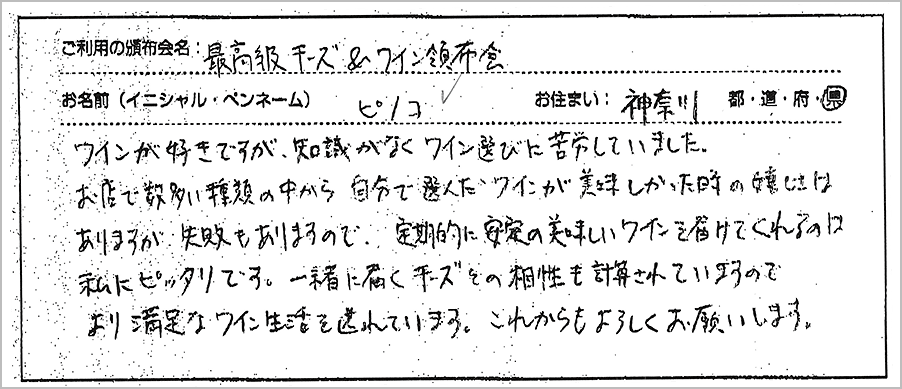 ご利用の頒布会名：最高級チーズ&ワイン頒布会
お名前（イニシャル・ペンネーム） ピノコ お住まい：神奈川 都・道・府・県
ワインが好きですが、知識がなくワイン選びに苦労していました。
お店で数多い種類の中から自分で選んだワインが美味しかった時の嬉しさは
ありますが、失敗もありますので、定期的に安定の美味しいワインを届けてくれるのは
私にピッタリです。一緒に届くチーズとの相性も計算されていますので
より満足なワイン生活を送れています。これからもよろしくお願いします。